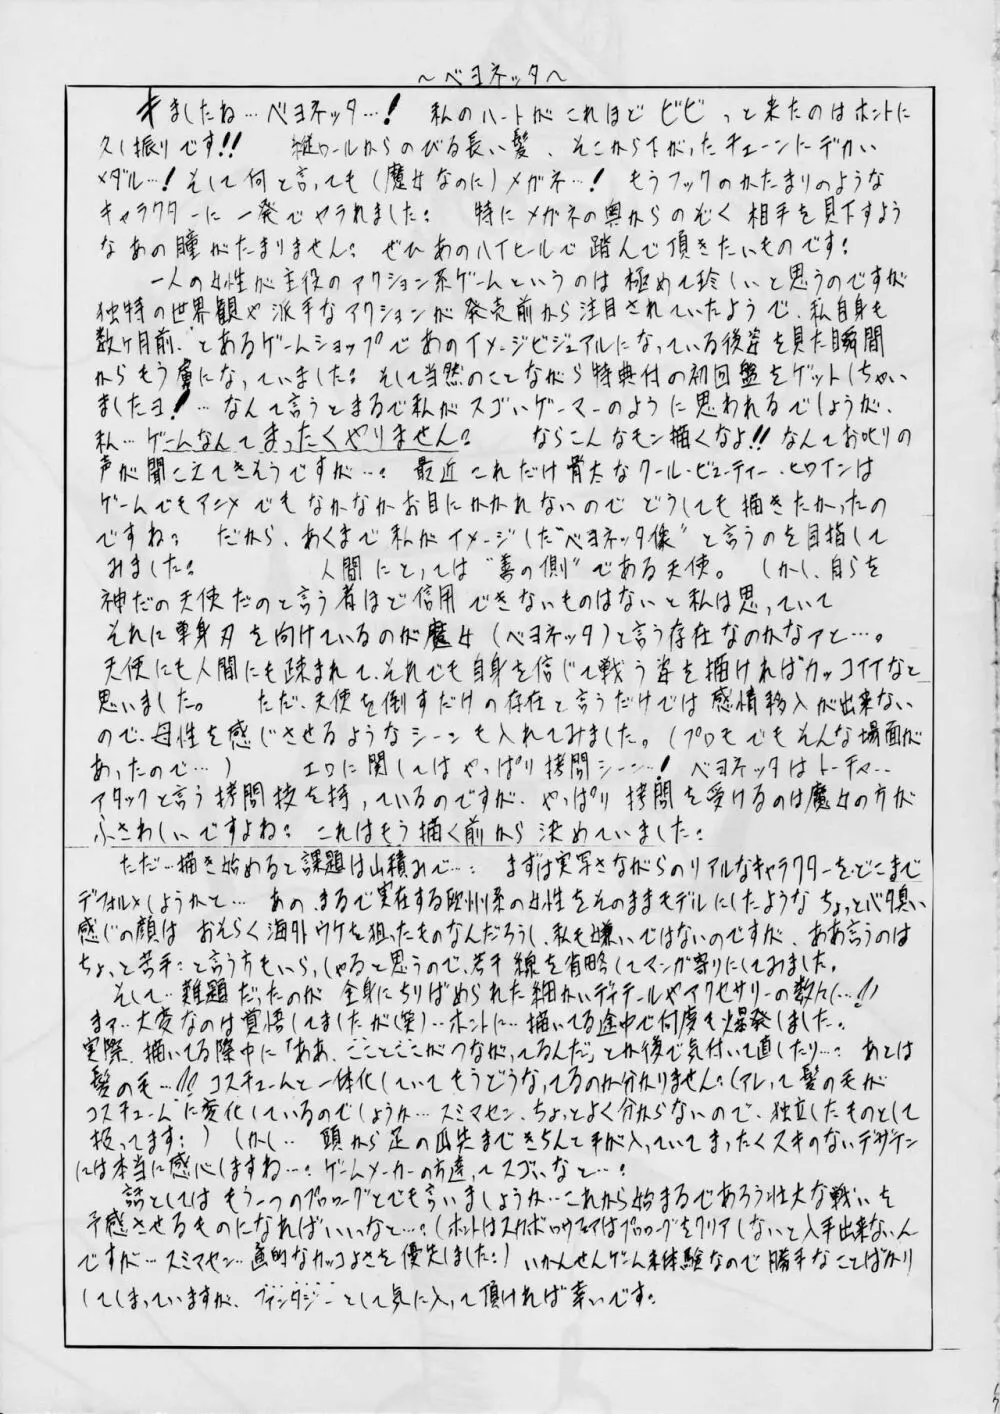 ～ベヨネッタ～
キましたね…ベヨネッタ…! 私のハートがこれほど ビビッと来たのはホントに
久し振りです!! 縦ロールからのびる長い髪、そこから下がったチェーンにデカい
メダル…! そして何と言っても(魔女なのに)メガネ…! もうフックのかたまりのような
キャラクターに一発でヤラれました。 特にメガネの奥からのぞく 相手を見下すよう
なあの瞳がたまりません。 ぜひあのハイヒールで踏んで頂きたいものです。
一人の女性が主役のアクション系ゲームというのは極めて珍しいと思うのですが
独特の世界観や派手なアクションが発売前から注目されていたようで、私自身も
数ヶ月前、とあるゲームショップであのイメージビジュアルになっている後姿を見た瞬間
からもう虜になっていました。 そして当然のことながら特典付の初回盤をゲットしちゃい
ましたヨ!…なんて言うとまるで私がスゴいゲーマーのように思われるでしょうが、
私…ゲームなんてまったくやりません。 ならこんなモン描くなよ!!なんてお叱りの
声が聞こえてきそうですが…。 最近これだけ骨太なクール・ビューティー・ヒロインは
ゲームでもアニメでもなかなかお目にかかれないので どうしても描きたかったの
ですね。 だから、あくまで私がイメージした“ベヨネッタ像”と言うのを目指して
みました。 人間にとっては“善の側”である天使。 しかし、自らを
神だの天使だのと言う者ほど信用できないものはないと私は思っていて
それに単身刃を向けているのが魔女(ベヨネッタ)と言う存在なのかなァと…。
天使にも人間にも疎まれて、それでも自身を信じて戦う姿を描ければカッコイイなと
思いました。 ただ、天使を倒すだけの存在と言うだけでは感情移入が出来ない
ので、母性を感じさせるようなシーンも入れてみました。(プロモでもそんな場面が
あったので…) エロに関してはやっぱり拷問シーン…! ベヨネッタはトーチャー・
アタックと言う拷問技を持っているのですが、やっぱり 拷問を受けるのは魔女の方が
ふさわしいですよね。 これはもう描く前から決めていました。
ただ…描き始めると課題は山積みで…。 まずは実写さながらのリアルなキャラクターを、どこまで
デフォルメしようかと… あの、まるで実在する欧州系の女性をそのままモデルにしたようなちょっとバタ臭い
感じの顔は おそらく海外ウケを狙ったものなんだろうし、私も嫌いではないのですが、ああ言うのは
ちょっと苦手…と言う方もいらっしゃると思うので、若干線を省略してマンガ寄りにしてみました。
そして…難題だったのが 全身にちりばめられた細かいディテールやアクセサリーの数々…!!
まァ…大変なのは覚悟してましたが(笑)…ホントに…描いてる途中で何度も爆発しました。
実際、描いてる際中に「ああ、こことここがつながってるんだ」とか後で気付いて直したり…。 あとは
髪の毛…!! コスチュームと一体化していてもうどうなってるのか分かりません。(アレって髪の毛が
コスチュームに変化しているのでしょうか…スミマセン、ちょっとよく分からないので、独立したものとして
扱ってます。) しかし… 頭から足の爪先まできちんと手が入っていてまったくスキのないデザイン
には本当に感心しますね…。ゲームメーカーの方達ってスゴいなと…。
話としてはもう一つのプロローグとでも言いましょうか…これから始まるであろう壮大な戦いを
予感させるものになればいいなと…。(ホントはスカボロウフェアはプロローグをクリアしないと入手出来ないん
ですが…スミマセン…画的なカッコよさを優先しました。) いかんせんゲーム未体験なので勝手なことばかり
してしまっていますが、ファンタジーとして気に入って頂ければ幸いです。